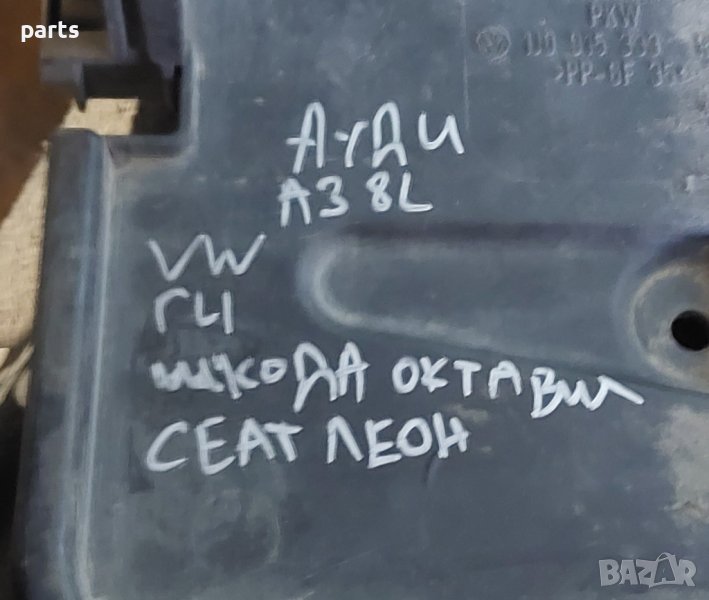 parts
PKW
1J0 915 333
>PP-GF 35<
АУДИ
A3 8L
VW
Г4
ШКОДА ОКТАВИА
СЕАТ ЛЕОН
BAZAR